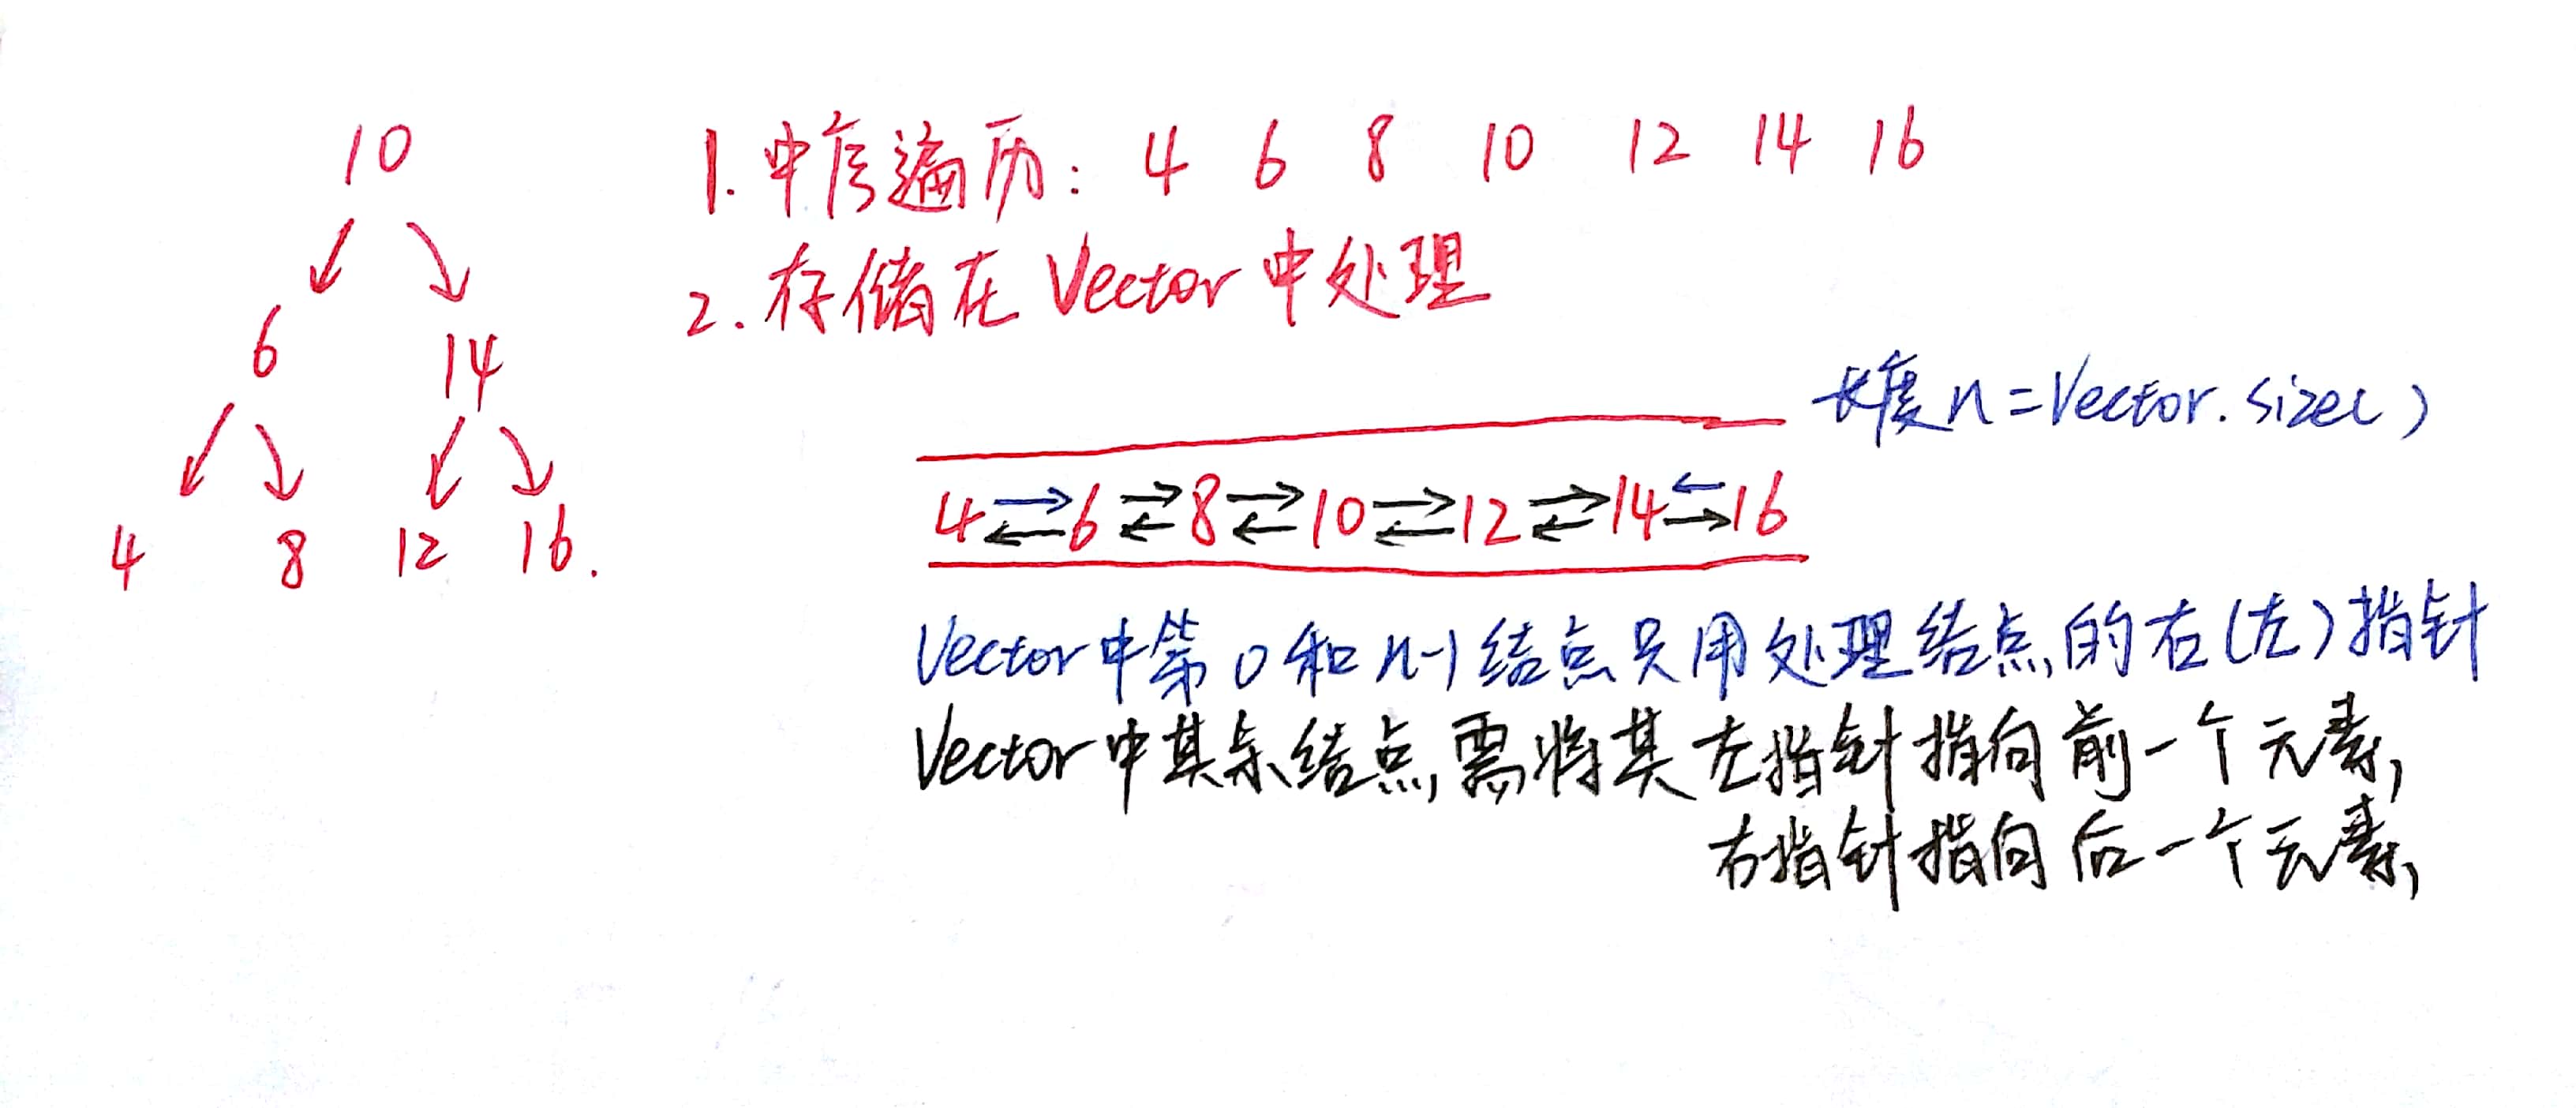 10
6 14
4 8 12 16.
1. 中序遍历: 4 6 8 10 12 14 16
2. 存储在 Vector 中处理
长度n=Vector.size()
4⇄6⇄8⇄10⇄12⇄14⇆16
Vector中第0和n-1结点只用处理结点的右(左)指针
Vector中其余结点,需将其左指针指向前一个元素,
右指针指向后一个元素,